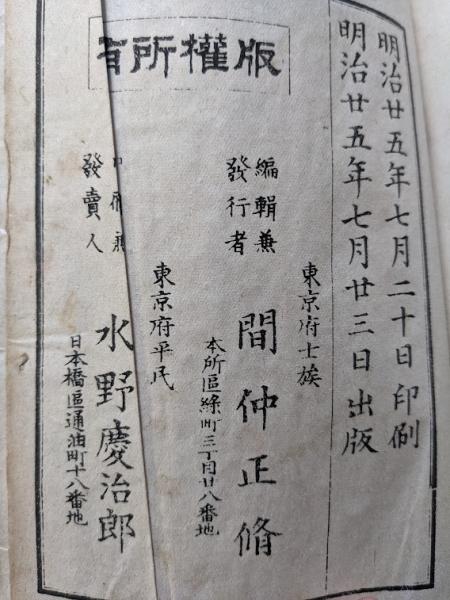 版權所有
明治廿五年七月二十日印刷
明治廿五年七月廿三日出版
東京府士族
編輯兼
發行者
間仲正脩
本所區綠町三丁目廿八番地
東京府平民
印刷兼
發賣人
水野慶治郎
日本橋區通油町十八番地